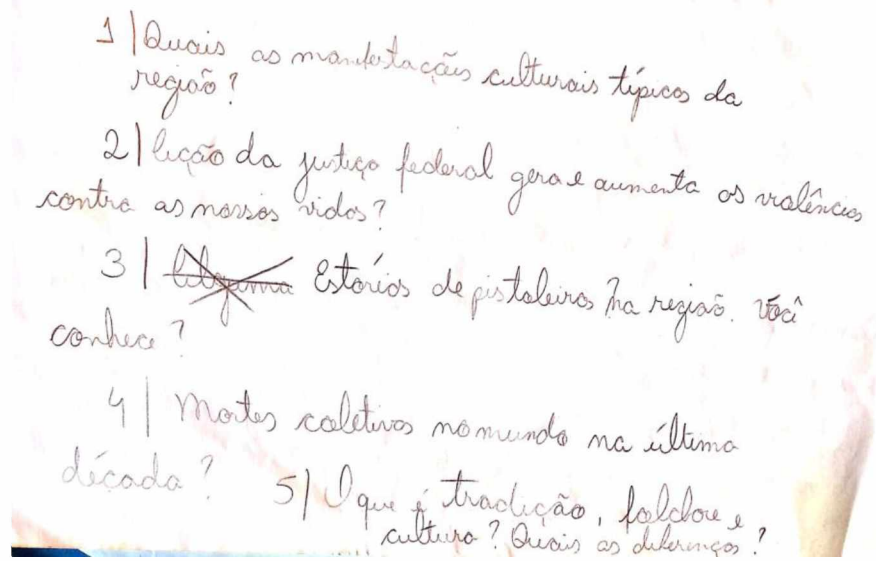 1| Quais as manifestações culturais típicas da
região?
2| lição da justiça federal gera e aumenta as violências
contra as nossas vidas?
3| Estórias de pistoleiros na região. Você
conhece?
4| Mortes coletivas no mundo na última
década?
5| O que é tradição, folclore e
cultura? Quais as diferenças?